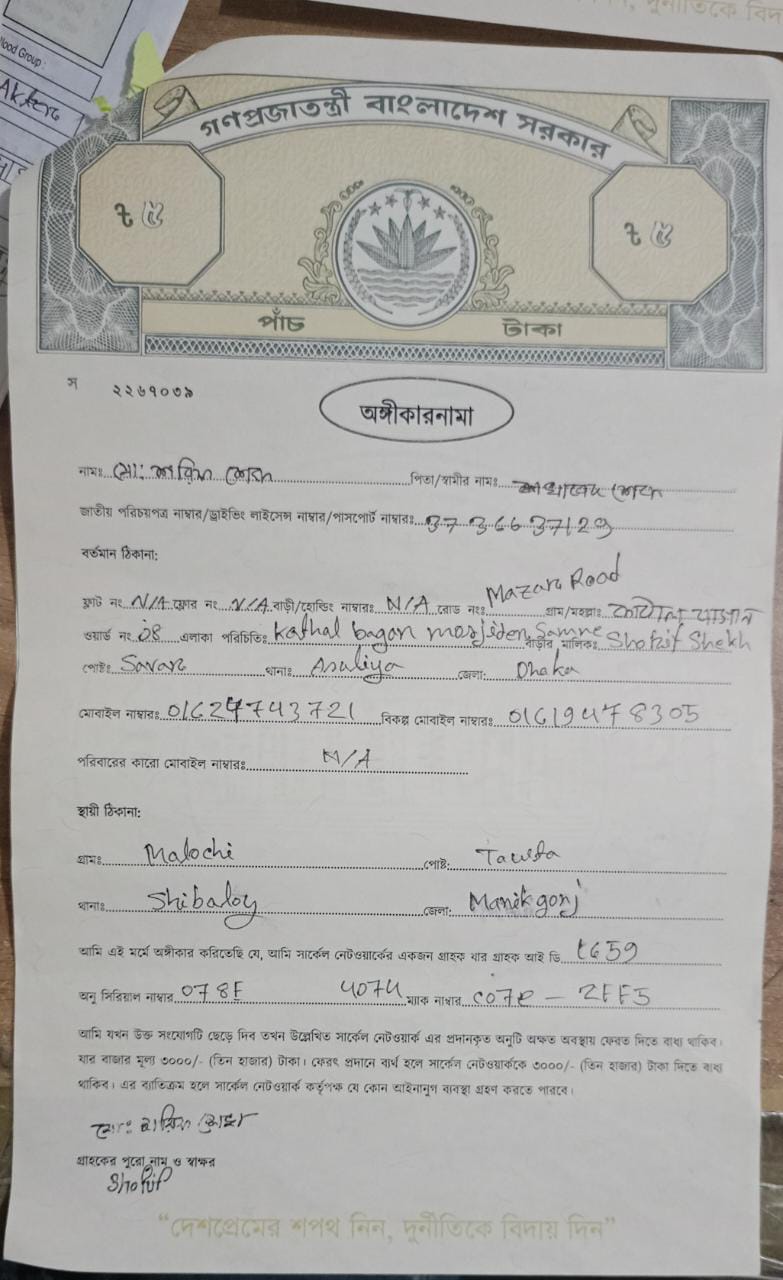 নীতিকে বিদা
Blood Group :
গণপ্রজাতন্ত্রী বাংলাদেশ সরকার
৳ ৫ ৳ ৫
পাঁচ টাকা
স ২২৬৭০৩৯
অঙ্গীকারনামা
নামঃ মো: শরিফ শেখ পিতা/স্বামীর নামঃ শেখ
জাতীয় পরিচয়পত্র নাম্বার/ড্রাইভিং লাইসেন্স নাম্বার/পাসপোর্ট নাম্বারঃ 3736637129
বর্তমান ঠিকানা:
ফ্লাট নং N/A ফ্লোর নং N/A বাড়ী/হোল্ডিং নাম্বারঃ N/A রোড নংঃ Mazar Road গ্রাম/মহল্লাঃ কাঠাল বাগান
ওয়ার্ড নং 08 এলাকা পরিচিতিঃ Kathal bagan Samne বাড়ীর মালিকঃ Shofif Shekh
পোষ্টঃ Savar থানাঃ Asuliya জেলা: Dhaka
মোবাইল নাম্বারঃ 01624743721 বিকল্প মোবাইল নাম্বারঃ 01619478305
পরিবারের কারো মোবাইল নাম্বারঃ N/A
স্থায়ী ঠিকানা:
গ্রামঃ Malochi পোষ্ট:
থানাঃ Shibaloy জেলা: Manikgonj
আমি এই মর্মে অঙ্গীকার করিতেছি যে, আমি সার্কেল নেটওয়ার্কের একজন গ্রাহক যার গ্রাহক আই ডি 659
অনু সিরিয়াল নাম্বার 078F 4074 ম্যাক নাম্বার C07R - 2FF5
আমি যখন উক্ত সংযোগটি ছেড়ে দিব তখন উল্লেখিত সার্কেল নেটওয়ার্ক এর প্রদানকৃত অনুটি অক্ষত অবস্থায় ফেরত দিতে বাধ্য থাকিব।
যার বাজার মূল্য ৩০০০/- (তিন হাজার) টাকা। ফেরৎ প্রদানে ব্যর্থ হলে সার্কেল নেটওয়ার্ককে ৩০০০/- (তিন হাজার) টাকা দিতে বাধ্য
থাকিব। এর ব্যতিক্রম হলে সার্কেল নেটওয়ার্ক কর্তৃপক্ষ যে কোন আইনানুগ ব্যবস্থা গ্রহণ করতে পারবে।
মো: শরিফ শেখ
গ্রাহকের পুরো নাম ও স্বাক্ষর
Shofif
“দেশপ্রেমের শপথ নিন, দুর্নীতিকে বিদায় দিন”